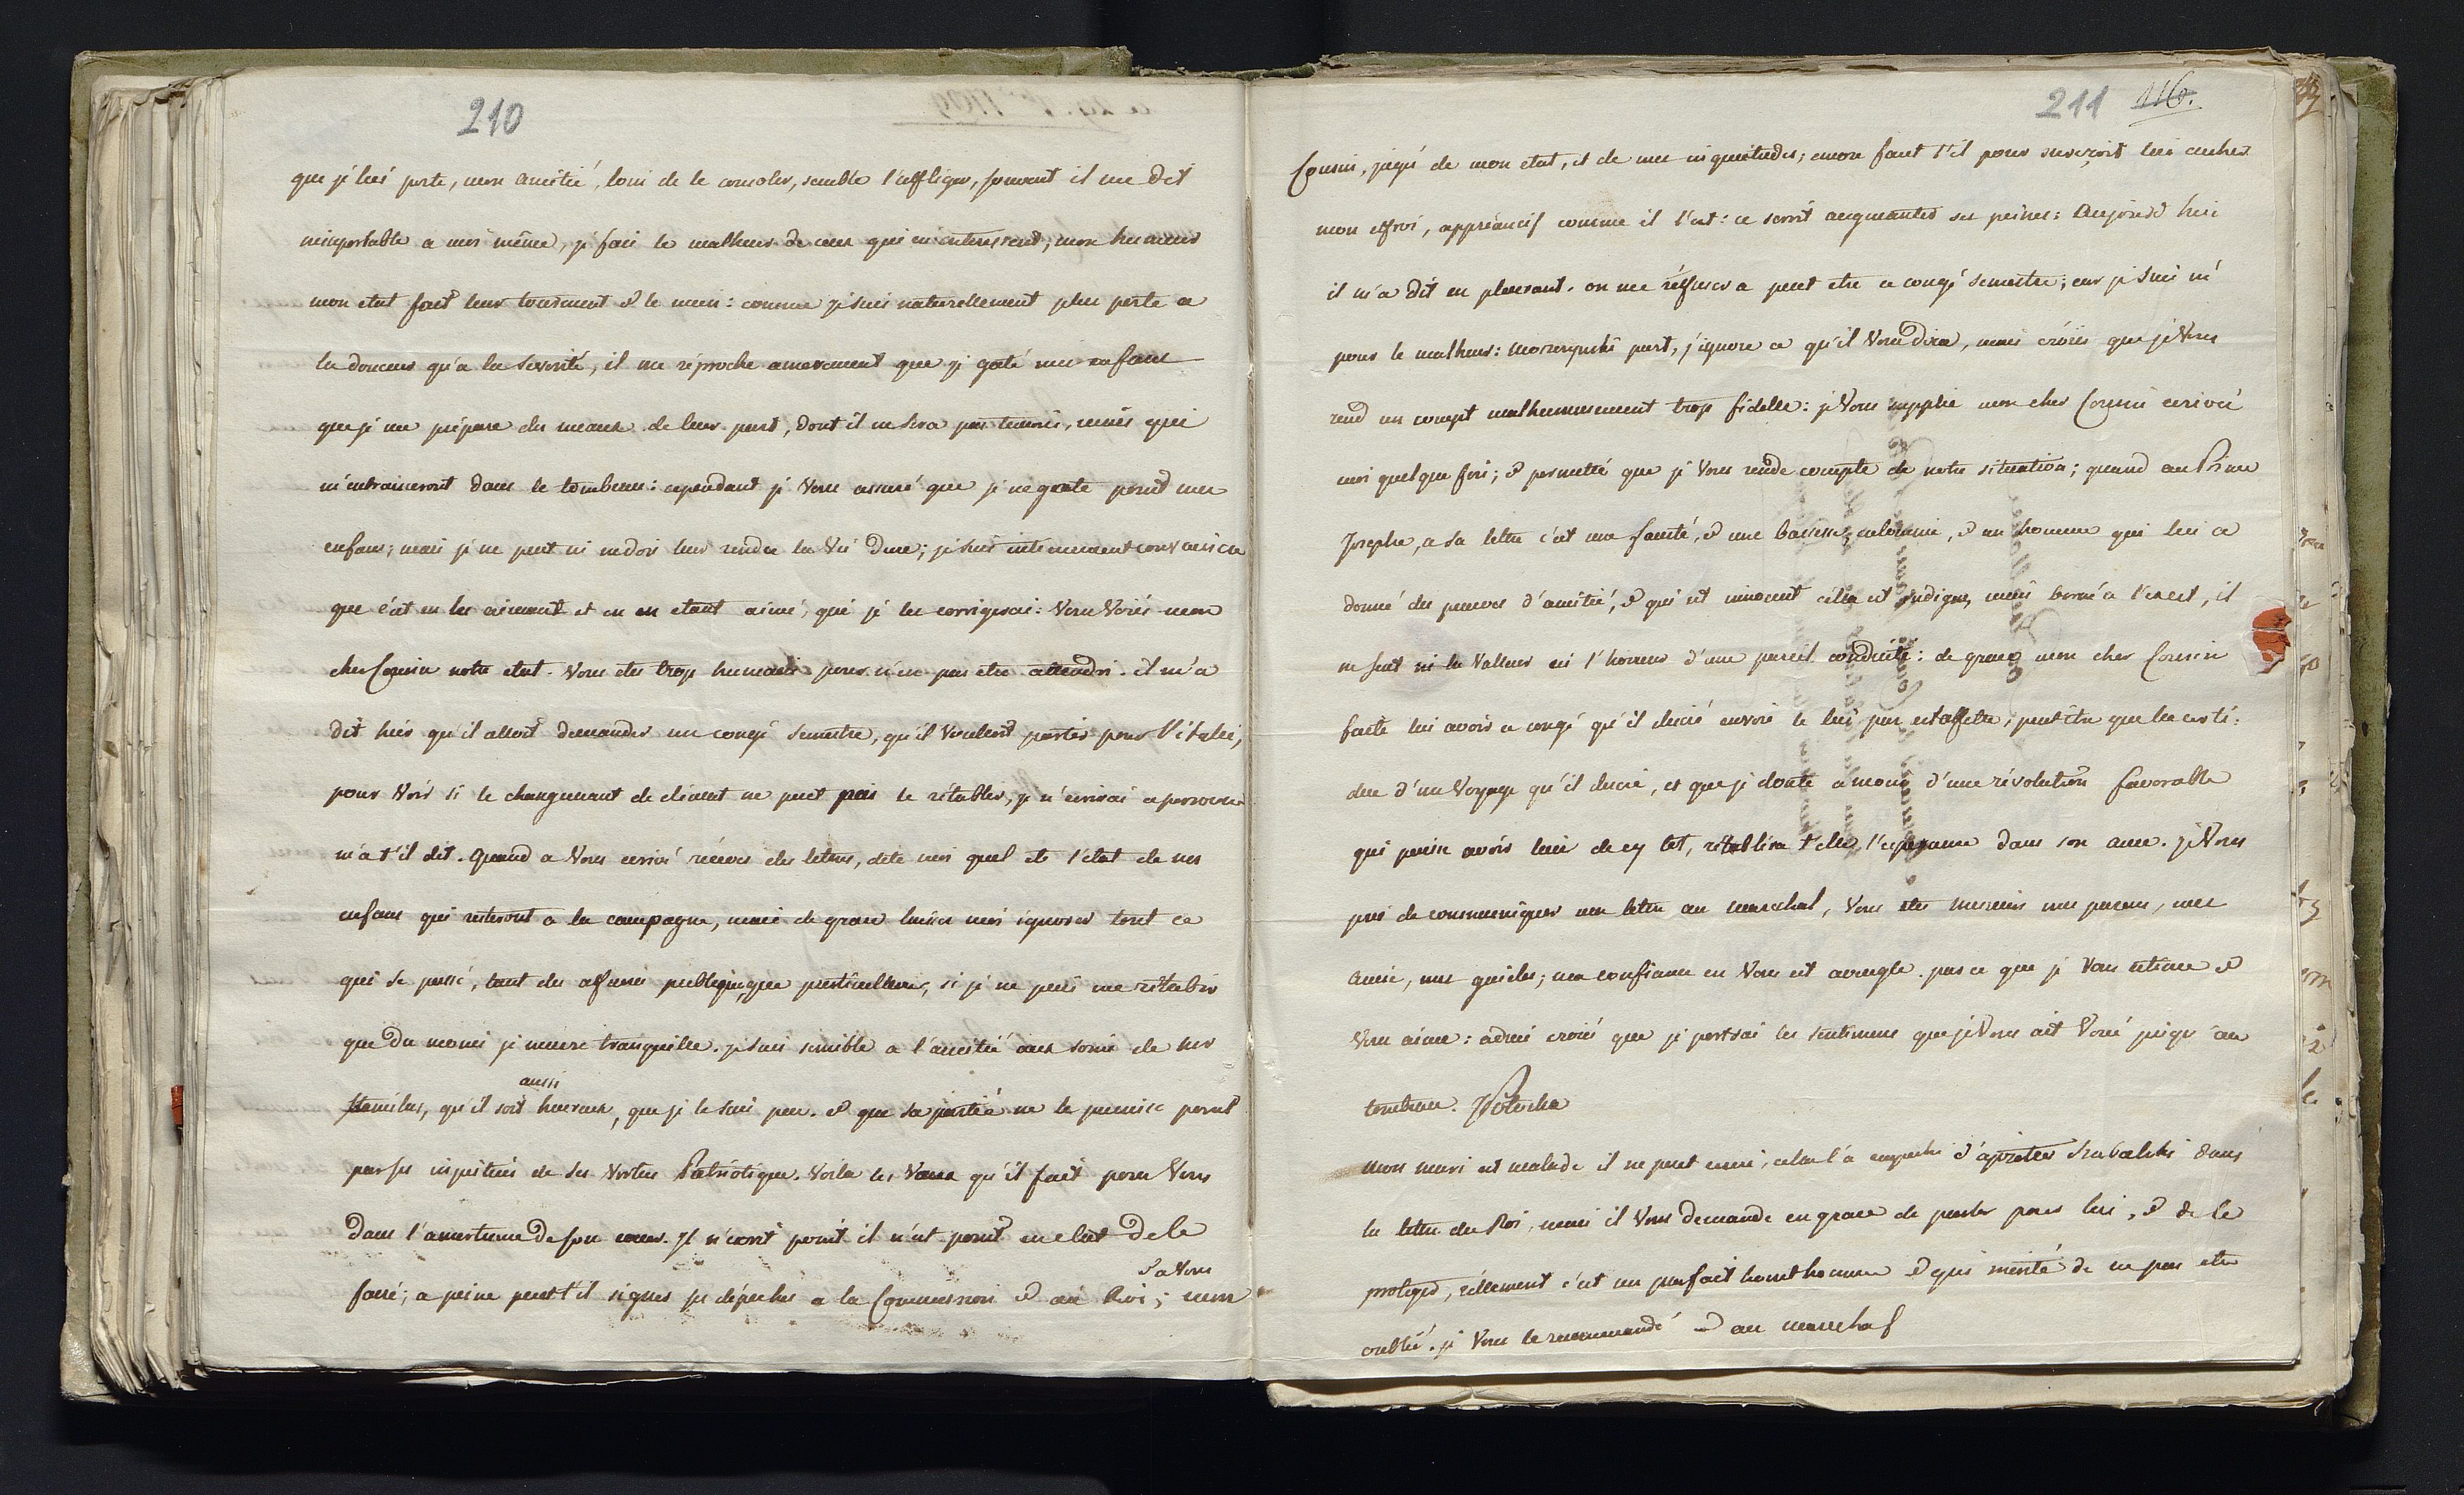 210
que je lui porte, mon amitié, loin de le consoler, semble l'affliger, souvent il me dit
insuportable a moi même, je fais le malheur de ceux qui m'interessent, mon humeur
mon etat font leur tourment et le mien: comme je suis naturellement plus porte a
la douceur qu'a la severité, il me réproche amerement que je gaté mes enfans
que je me prépare des meaux de leur part, dont il ne sera pas temoin, mais qui
m'entraineront dans le tombeau: cependant je vous assuré que je ne gate point mes
enfans; mais je ne peut ni ne dois leur rendre la vie dure; je suis intimement convaincue
que c'est en les aiment et en en etant aimé, que je les corrigerai: Vous Voiés mon
cher Cousin notre etat. Vous etes trop humain pour n'en pas etre attendri. il m'a
dit hier qu'il alloit demander un congé semestre, qu'il vouloit partir pour l'italie,
pour Voir si le changement de climat ne peut pas le rétablir, je n'ecrirai a personne
m'a t'il dit. Quand a Vous ecrivé récevez des letres, dite moi quel est l'etat de mes
enfans qui resteront a la campagne, mais de grace laissez moi ignorer tout ce
qui se passé, tant des afaires publiques que particulieres, si je ne peus me rétablir
que du moins je meure tranquille. je suis sensible a l'amitié aux soins de
Stanislas, qu'il soit heureux, que je le suis peu. et que sa patrie ne le punisse point
aussi
par ses injustices de ses Vertus Patriotiques. Voila les Vœux qu'il fait pour Vous
dans l'amertume de son cœur. Il n'ecrit point il n'est point en etat de le
faire; a peine peut t'il signer ses dépeches a la Commission et au Roi; mon
et a Vous
211 116.
Cousin, jugé de mon etat, et de mes inquietudes; encore faut t'il pour surcroit lui cacher
mon effroi, appréancif comme il l'est: ce seroit augmenter ses peines: Aujourd hui
il m'a dit en pleurant. on me réfusera peut etre ce congé semestre; car je suis né
pour le malheur: part, j'ignore ce qu'il Vous dira, mais croiés que je Vous
rend un compt malheureusement trop fidelle: je Vous supplie mon cher Cousin ecrivé
moi quelque fois; et permetté que je Vous rende compte de notre situation; quand au Prince
Josephe, a sa letre c'est une fausté, et une bassesse, calomnie, et un homme qui lui a
donné des preuves d'amitié, et qui est innocent cella est indigne, mais borné a l'excet, il
ne sent ni la Valleur ni l'horreur d'une pareil conduite: de grace mon cher Cousin
faite lui avoir ce congé qu'il desiré envoié le lui par estaffette, peut etre que la certi:
due d'un Voyage qu'il desire, et que je doute a moins d'une révolution favorable
qui puisse avoir lieu de cy tot, rétablira t'elle l'esperance dans son ame. je Vous
prie de communiquer ma letre au marechal, Vous etes mes parens, mes
amis, mes guides; ma confiance en Vous est aveugle. par ce que je Vous estime et
Vous aime: adieu croiés que je porterai les sentimens que je Vous ait Voué jusqu'au
tombeau. Potocka
Mon mari est malade il ne peut ecrire, cela l'a empeché d'ajouter dans
la letre du Roi, mais il Vous demande en grace de parler pour lui, et de le
protéger, réellement c'est un parfait honet homme et qui merite de ne pas etre
oublié. je Vous le recommandé et au marechal